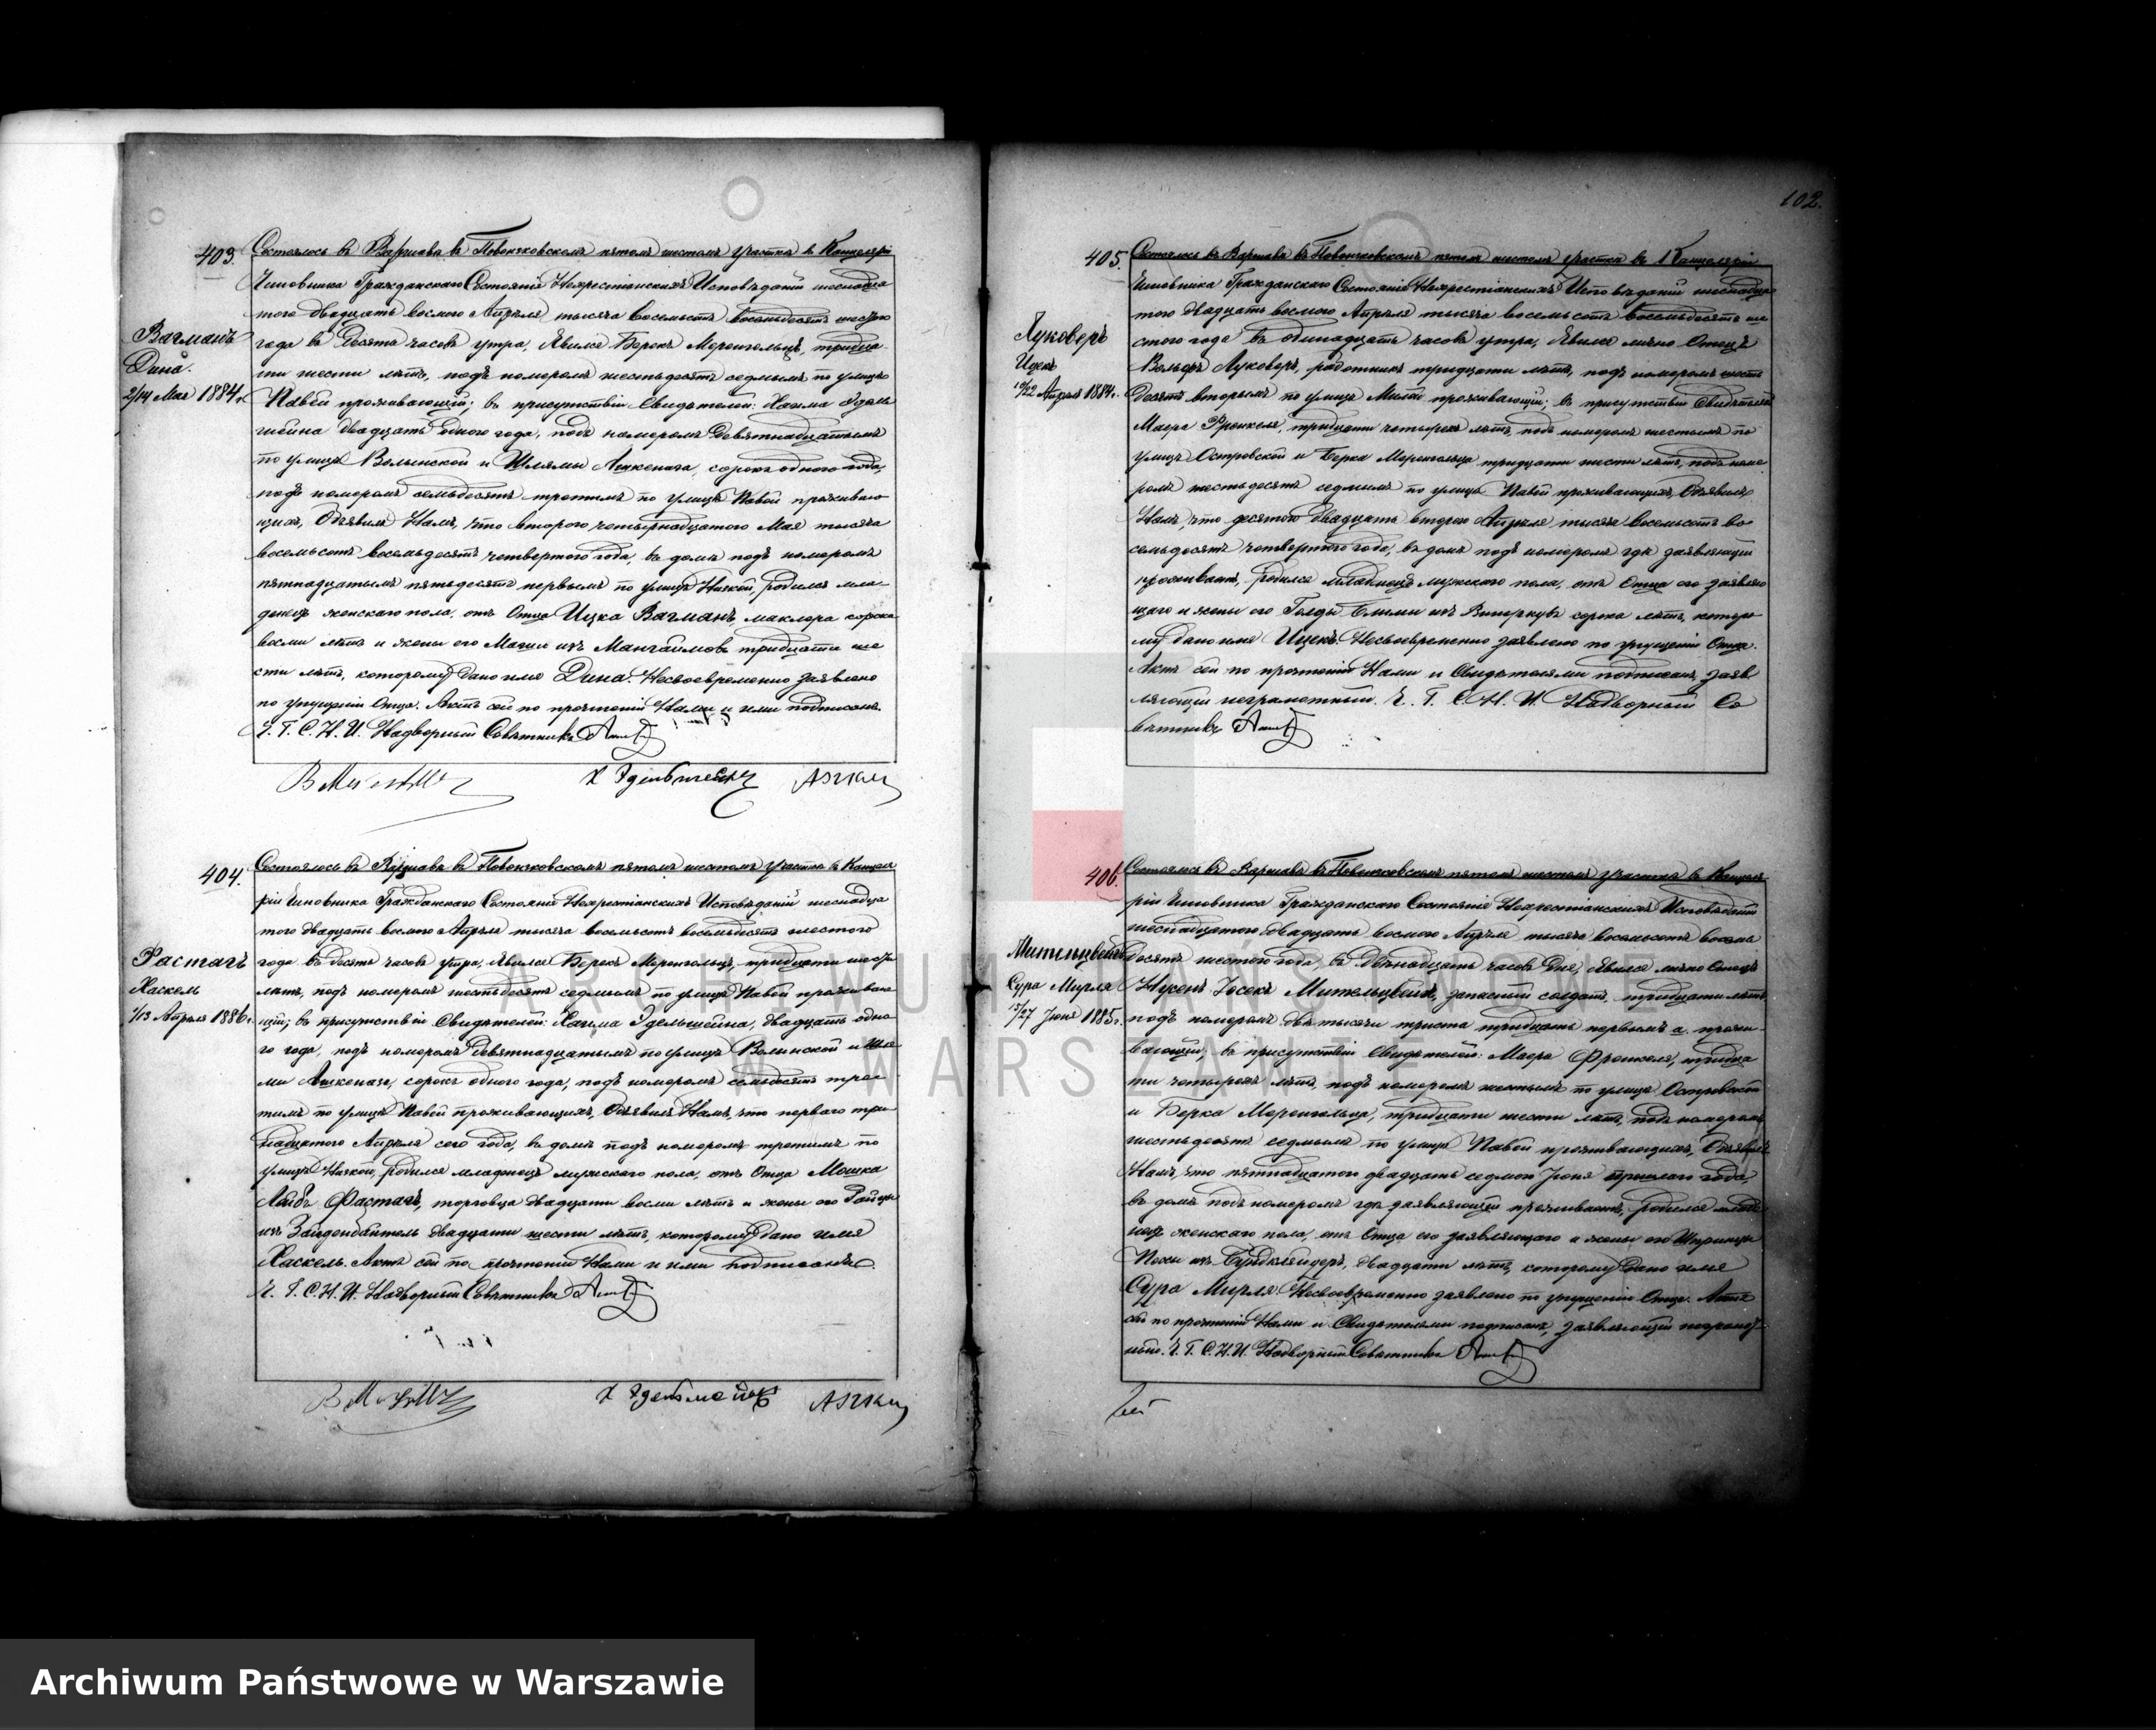 102.
403.
Вагманъ
Дина.
2/14 Мая 1884 г.
Состоялось въ Варшавѣ въ Повонзковскомъ пятомъ шестомъ участкѣ въ Канцеляріи
Чиновника Гражданскаго Состоянія Нехристіанскихъ Исповѣданій шестнадца
того двадцать восьмого Апрѣля тысяча восемьсотъ восемьдесятъ шестого
года въ Десять часовъ утра, Явился Берекъ Меренгольцъ, тридца
ти шести лѣтъ, подъ номеромъ шестьдесятъ седьмымъ по улицѣ
Павей проживающій; въ присутствіи Свидѣтелей: Хаима Эдель
штейна двадцать одного года, подъ номеромъ Девятнадцатымъ
по улицѣ Волынской и Шлямы Ашкеназа, сорокъ одного года,
подъ номеромъ семьдесятъ третьимъ по улицѣ Павей проживаю
щихъ, Объявилъ Намъ, что второго четырнадцатого Мая тысяча
восемьсотъ восемьдесятъ четвертого года, въ домѣ подъ номеромъ
пятнадцатымъ пятьдесятъ первымъ по улицѣ Низкой, родился мла-
денецъ женскаго пола, отъ Отца Ицка Вагманъ, маклера сорока
восьми лѣтъ и жены его Маши изъ Мангаймовъ тридцати ше
сти лѣтъ, которому дано имя Дина. Несвоевременно заявлено
по упущенію Отца. Актъ сей по прочтеніи Нами и ими подписанъ.
Ч. Г. С. Н. И. Надворный Совѣтникъ
404.
Фастагъ
Хаскель
1/13 Апрѣля 1886 г.
Состоялось въ Варшавѣ въ Повонзковскомъ пятомъ шестомъ участкѣ въ Канцеля
ріи Чиновника Гражданскаго Состоянія Нехристіанскихъ Исповѣданій шестнадца
того двадцать восьмого Апрѣля тысяча восемьсотъ восемьдесятъ шестого
года въ Десять часовъ утра, Явился Берекъ Меренгольцъ, тридцати шести
лѣтъ, подъ номеромъ шестьдесятъ седьмымъ по улицѣ Павей проживаю
щій; въ присутствіи Свидѣтелей: Хаима Эдельштейна, двадцать одно
го года, подъ номеромъ Девятнадцатымъ по улицѣ Волынской и Шля
мы Ашкеназа, сорокъ одного года, подъ номеромъ семьдесятъ треть
имъ по улицѣ Павей проживающихъ, Объявилъ Намъ, что перваго три
надцатого Апрѣля сего года, въ домѣ подъ номеромъ третьимъ по
улицѣ Низкой, родился младенецъ мужскаго пола, отъ Отца Мошка
Лейбъ Фастагъ, торговца двадцати восьми лѣтъ и жены его
изъ Зайденбайтель двадцати шести лѣтъ, которому дано имя
Хаскель. Актъ сей по прочтеніи Нами и ими подписанъ.
Ч. Г. С. Н. И. Надворный Совѣтникъ
405.
Луковеръ
Ицекъ
10/22 Апрѣля 1884 г.
Состоялось въ Варшавѣ въ Повонзковскомъ пятомъ шестомъ участкѣ въ Канцеляріи
Чиновника Гражданскаго Состоянія Нехристіанскихъ Исповѣданій шестнадца
того двадцать восьмого Апрѣля тысяча восемьсотъ восемьдесятъ ше
стого года въ одинадцать часовъ утра, Явился лично Отецъ
Вольфъ Луковеръ, работникъ тридцати лѣтъ, подъ номеромъ шесть
десятъ вторымъ по улицѣ Милой проживающій; въ присутствіи Свидѣтелей
Маера Френкеля, тридцати четырехъ лѣтъ, подъ номеромъ шестымъ по
улицѣ Островской и Берка Меренгольца тридцати шести лѣтъ, подъ номе
ромъ шестьдесятъ седьмымъ по улицѣ Павей проживающихъ, Объявилъ
Намъ, что десятого двадцать второго Апрѣля тысяча восемьсотъ во
семьдесятъ четвертого года, въ домѣ подъ номеромъ гдѣ заявляющій
проживаетъ, родился младенецъ мужскаго пола, отъ Отца его заявляю
щаго и жены его Голды сорока лѣтъ, которо
му дано имя Ицекъ. Несвоевременно заявлено по упущенію Отца.
Актъ сей по прочтеніи Нами и Свидѣтелями подписанъ, заяв
ляющій неграмотный. Ч. Г. С. Н. И. Надворный Со
вѣтникъ
406.
Мительцвейгъ
Сура Мирля
15/27 Іюня 1885 г.
Состоялось въ Варшавѣ въ Повонзковскомъ пятомъ шестомъ участкѣ въ Канцеля
ріи Чиновника Гражданскаго Состоянія Нехристіанскихъ Исповѣданій
шестнадцатого двадцать восьмого Апрѣля тысяча восемьсотъ восемь
десятъ шестого года, въ Двѣнадцать часовъ Дня, Явился лично Отецъ
Іосекъ Мительцвейгъ, запасный солдатъ, тридцати лѣтъ
подъ номеромъ двѣ тысячи триста тридцать первымъ а. прожи-
вающій, въ присутствіи Свидѣтелей: Маера Френкеля, тридца
ти четырехъ лѣтъ, подъ номеромъ шестымъ по улицѣ Островской
и Берка Меренгольца, тридцати шести лѣтъ, подъ номеромъ
шестьдесятъ седьмымъ по улицѣ Павей проживающихъ, Объявилъ
Намъ, что пятнадцатого двадцать седьмого Іюня прошлаго года
въ домѣ подъ номеромъ гдѣ заявляющій проживаетъ, родился младе
нецъ женскаго пола, отъ Отца его заявляющаго и жены его Шпринцы
двадцати лѣтъ, которому дано имя
Сура Мирля. Несвоевременно заявлено по упущенію Отца. Актъ
сей по прочтеніи Нами и Свидѣтелями подписанъ, заявляющій неграмот-
ный. Ч. Г. С. Н. И. Надворный Совѣтникъ
ARCHIWUM PAŃSTWOWE
W WARSZAWIE
Archiwum Państwowe w Warszawie